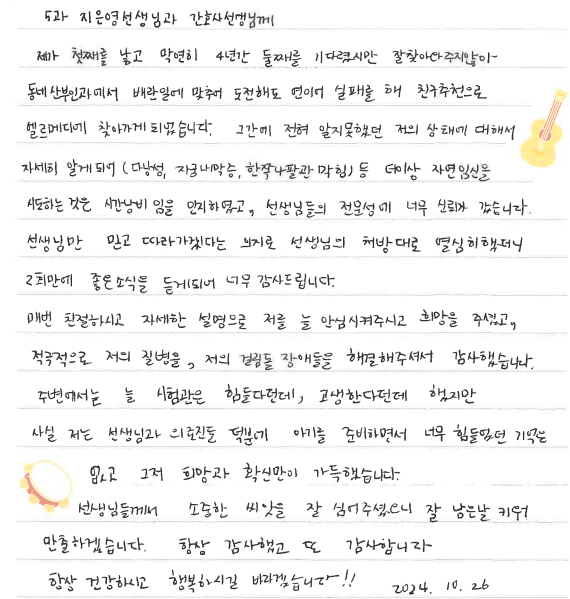 5과 지은영선생님과 간호사선생님께
제가 첫째를 낳고 막연히 4년간 둘째를 기다렸지만 잘찾아와주지않아
동네산부인과에서 배란일에 맞추어 도전해도 연이어 실패를 해 친구추천으로
엘르메디에 찾아가게 되었습니다. 그간에 전혀 알지못했던 저의 상태에 대해서
자세히 알게되어 (다낭성, 자궁내막증, 한쪽나팔관 막힘) 등 더이상 자연임신을
시도하는 것은 시간낭비 임을 인지하였고, 선생님들의 전문성에 너무 신뢰가 갔습니다.
선생님만 믿고 따라가겠다는 의지로 선생님의 처방대로 열심히했더니
2회만에 좋은소식을 듣게되어 너무 감사드립니다.
매번 친절하시고 자세한 설명으로 저를 늘 안심시켜주시고 희망을 주셨고,
적극적으로 저의 질병을, 저의 걸림돌 장애들을 해결해주셔서 감사했습니다.
주변에서는 늘 시험관은 힘들다던데, 고생한다던데 했지만
사실 저는 선생님과 의료진들 덕분에 아기를 준비하면서 너무 힘들었던 기억은
없고 그저 희망과 확신만이 가득했습니다.
선생님들께서 소중한 씨앗을 잘 심어주셨으니 잘 남은날 키워
만출하겠습니다. 항상 감사했고 또 감사합니다
항상 건강하시고 행복하시길 바라겠습니다!!
2024. 10. 26